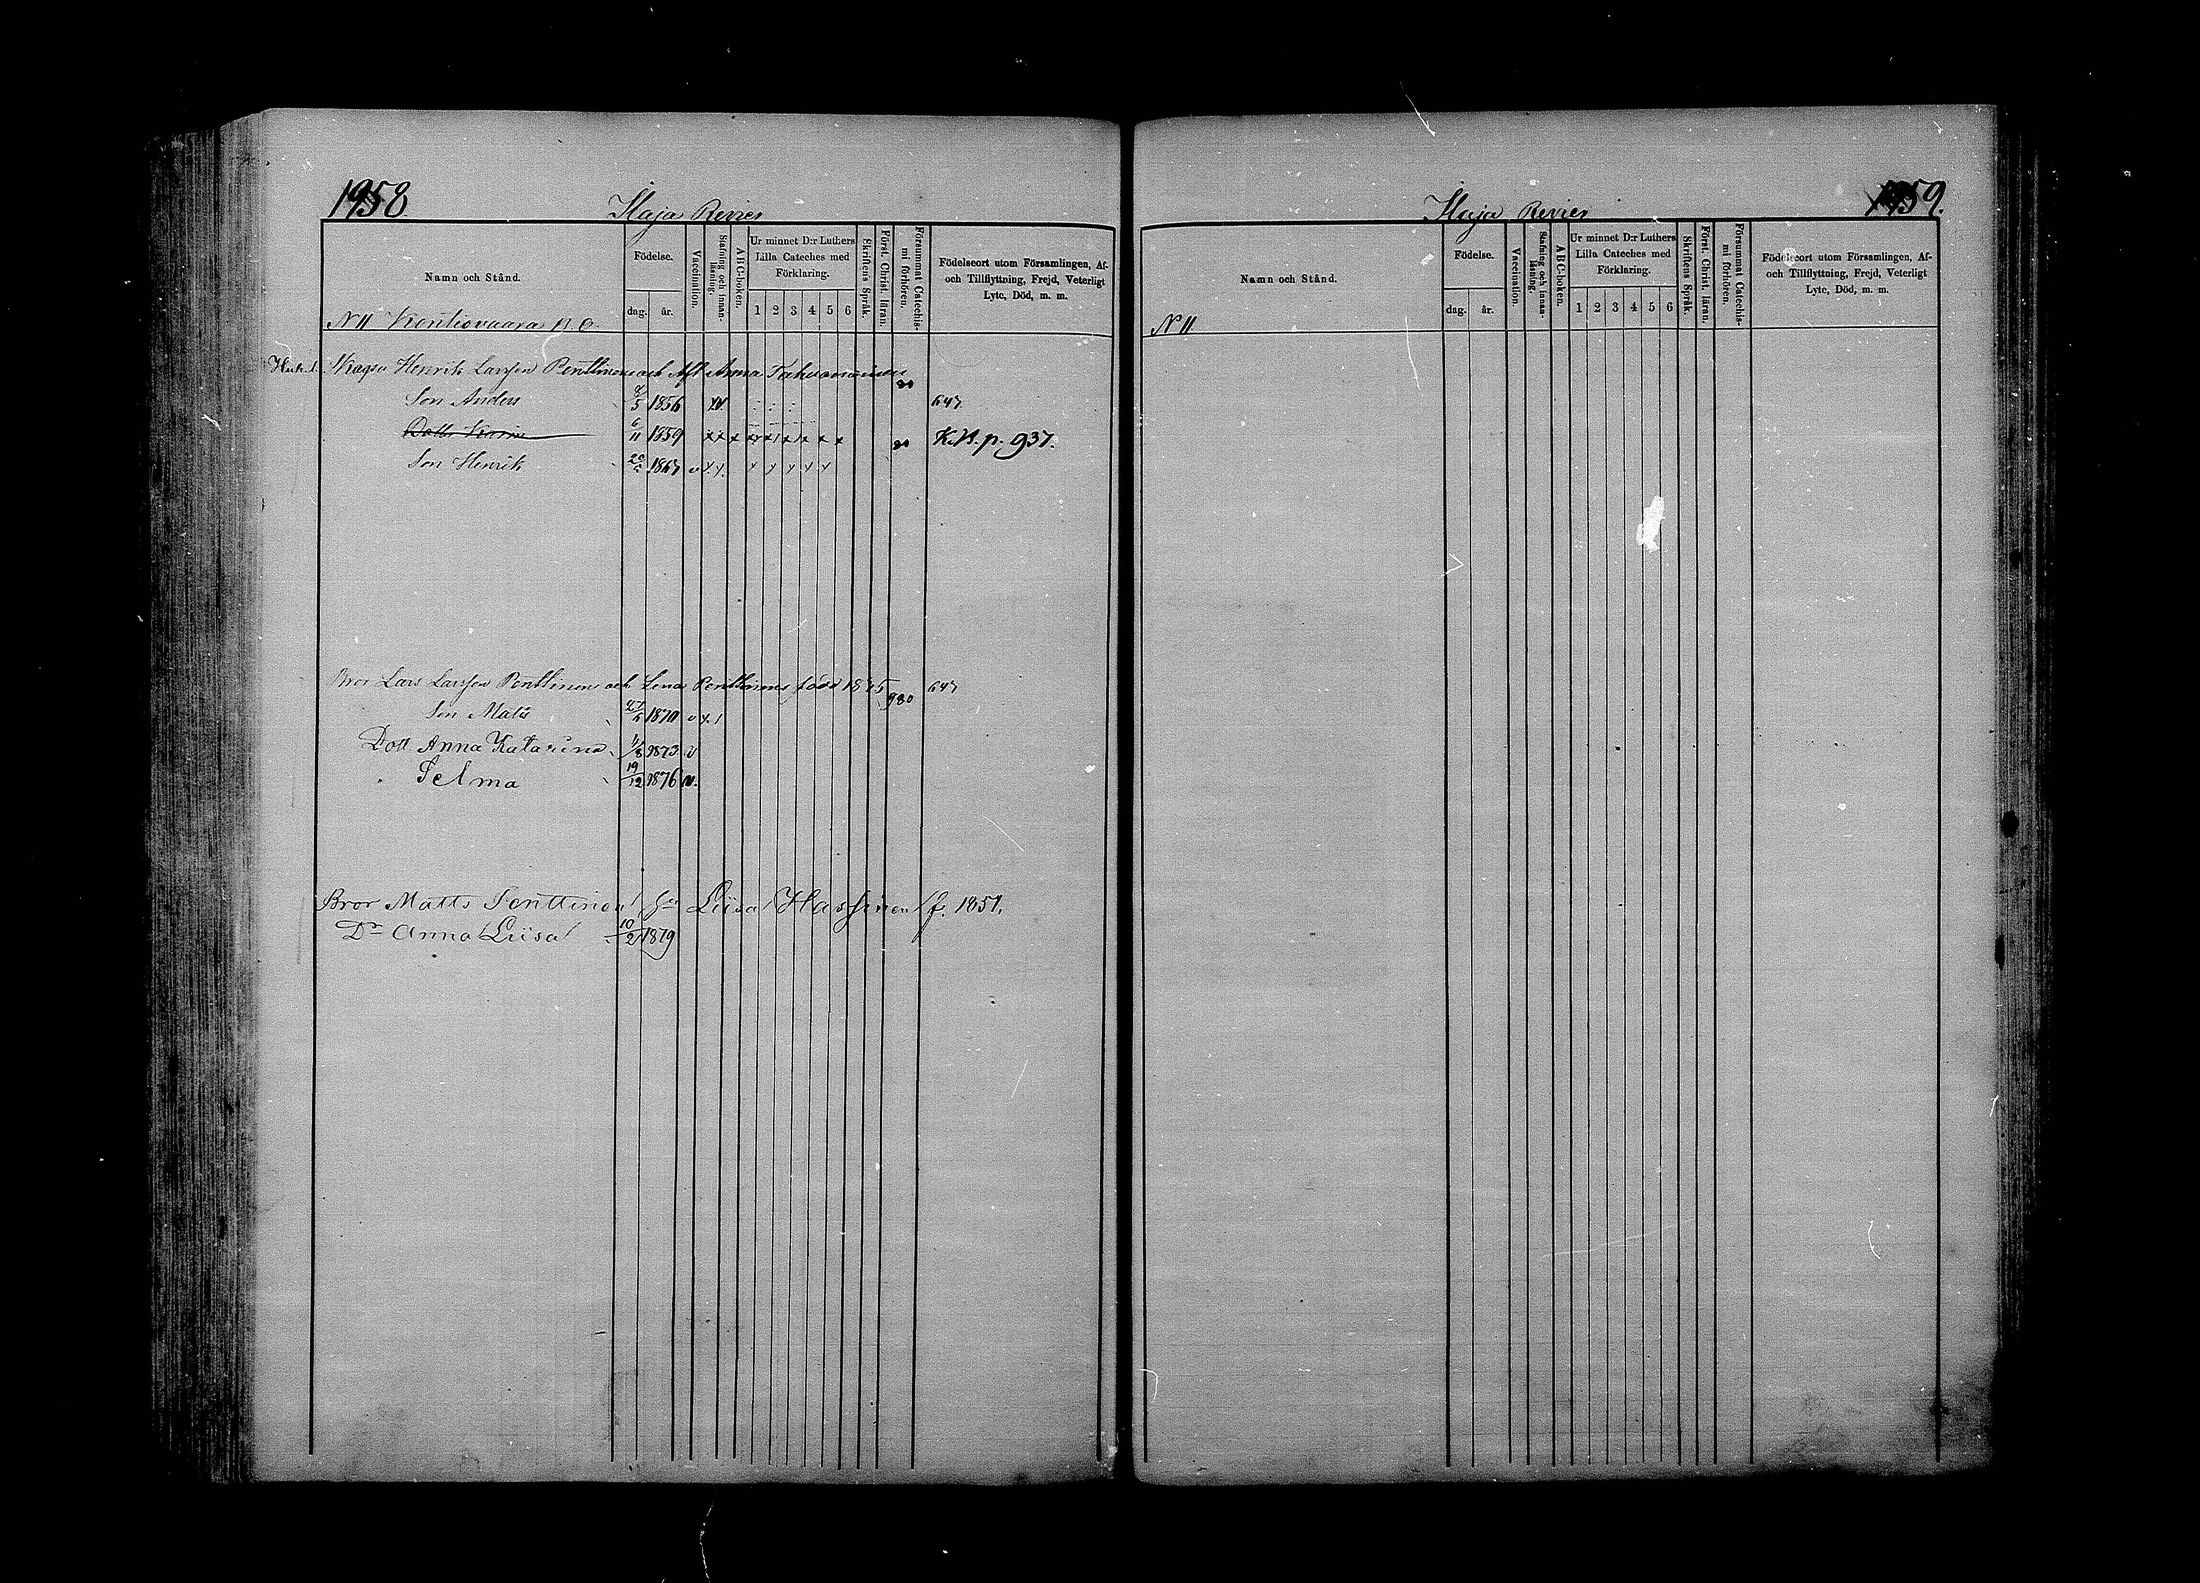 1958
Ilaja Revier
Namn och Stånd.
Födelse.
dag. år.
Vaccination.
Stafning och innan-läsning.
ABC-boken.
Ur minnet D:r Luthers
Lilla Cateches med
Förklaring.
1 2 3 4 5 6
Skriftens Språk.
Först. Christ. läran.
Försummat Catechis-mi förhören.
Födelseort utom Församlingen, Af-
och Tillflyttning, Frejd, Veterligt
Lyte, Död, m. m.
N 11 Kontiovaara
Henrik Larsson Penttinen och Anna
Son Anders 1856 647
Dottr Karin 6/11 1859 x x x x x x x x x K.B. p. 937.
Son Henrik 1867 v x x x x x x x
Bror Lars Larsson Penttinen och Lena Penttinen född 18 980 647
Son Matts 1870 v x
Dott Anna Katarina 1873 v
" Selma 19/12 1876 v.
Bror Matts Penttinen Liisa Hassinen f. 1851.
Dr Anna Liisa 10/2 1879
Ilaja Revier
1959.
Namn och Stånd.
Födelse.
dag. år.
Vaccination.
Stafning och innan-läsning.
ABC-boken.
Ur minnet D:r Luthers
Lilla Cateches med
Förklaring.
1 2 3 4 5 6
Skriftens Språk.
Först. Christ. läran.
Försummat Catechis-mi förhören.
Födelseort utom Församlingen, Af-
och Tillflyttning, Frejd, Veterligt
Lyte, Död, m. m.
N 11.